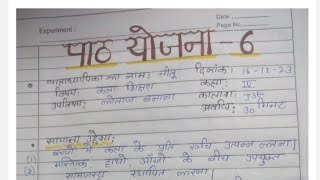 Experiment :
Date
Page No.
पाठ योजना - 6
छात्राध्यापिका का नाम: नीतू दिनांक: 16-12-23
विषय: कला शिक्षा कक्षा: IV
उपविषय: बनाना कालांश:
अवधि: 30 मिनट
सामान्य उद्देश्य:
(1) बच्चों में कला के प्रति रुचि उत्पन्न करना।
(2) मस्तिष्क हाथों, आँखों के बीच उपयुक्त
सामंजस्य स्थापित करना।